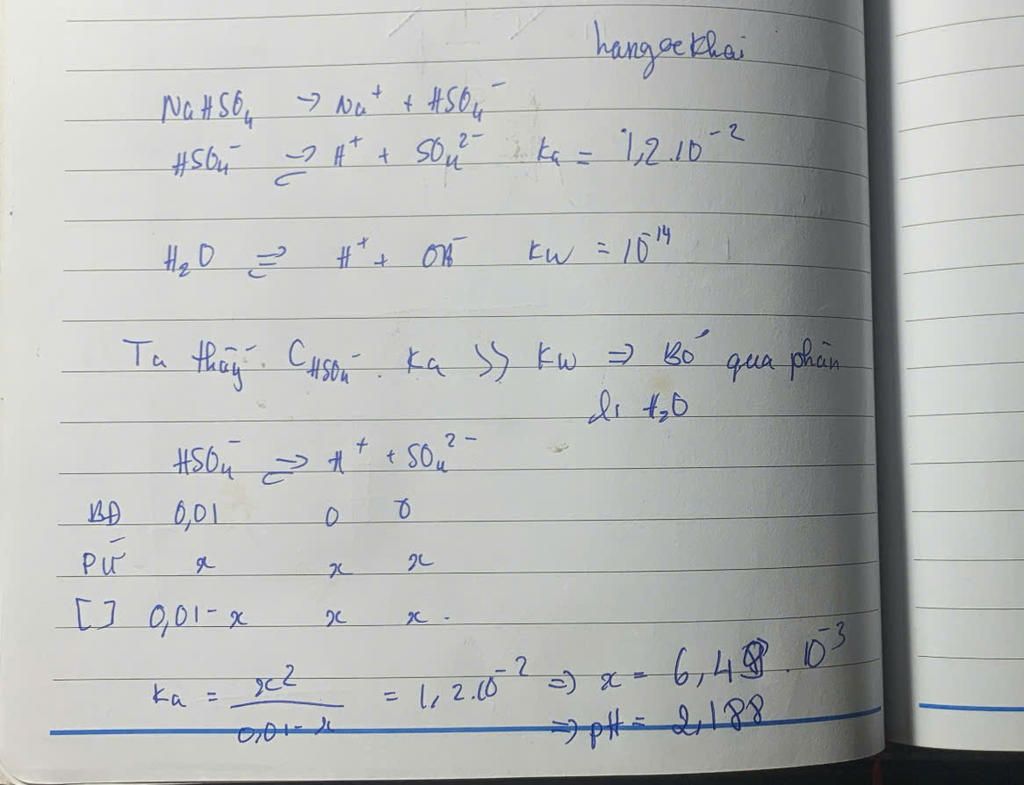 hangoekhai
NaHSO₄ → Na⁺ + HSO₄⁻
HSO₄⁻ ⇌ H⁺ + SO₄²⁻ Ka = 1,2.10⁻²
H₂O ⇌ H⁺ + OH⁻ KW = 10⁻¹⁴
Ta thấy C_HSO₄⁻ . Ka >> KW ⇒ Bỏ qua phân
li H₂O
HSO₄⁻ ⇌ H⁺ + SO₄²⁻
BĐ 0,01 0 0
PƯ x x x
[ ] 0,01-x x x.
Ka = x²/(0,01-x) = 1,2.10⁻² ⇒ x = 6,49.10⁻³
⇒ pH = 2,188